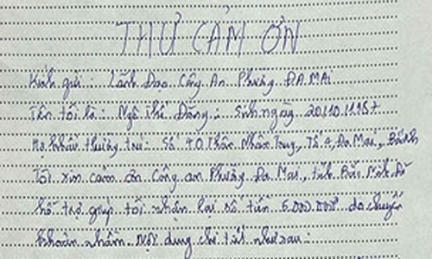 THƯ CẢM ƠN
Kính gửi: Lãnh Đạo Công An Phường ĐA MAI
Tên tôi là: Ngô Thế Đăng; Sinh ngày 20/10/1957
Hộ khẩu thường trú: Số 40 Thân Nhân Trung, Tổ 4, Đa Mai,
Tôi xin cảm ơn Công an Phường Đa Mai, tỉnh Bắc Ninh Đã
hỗ trợ giúp tôi nhận lại số tiền 5.000.000đ do chuyển
khoản nhầm nội dung chi tiết như sau: